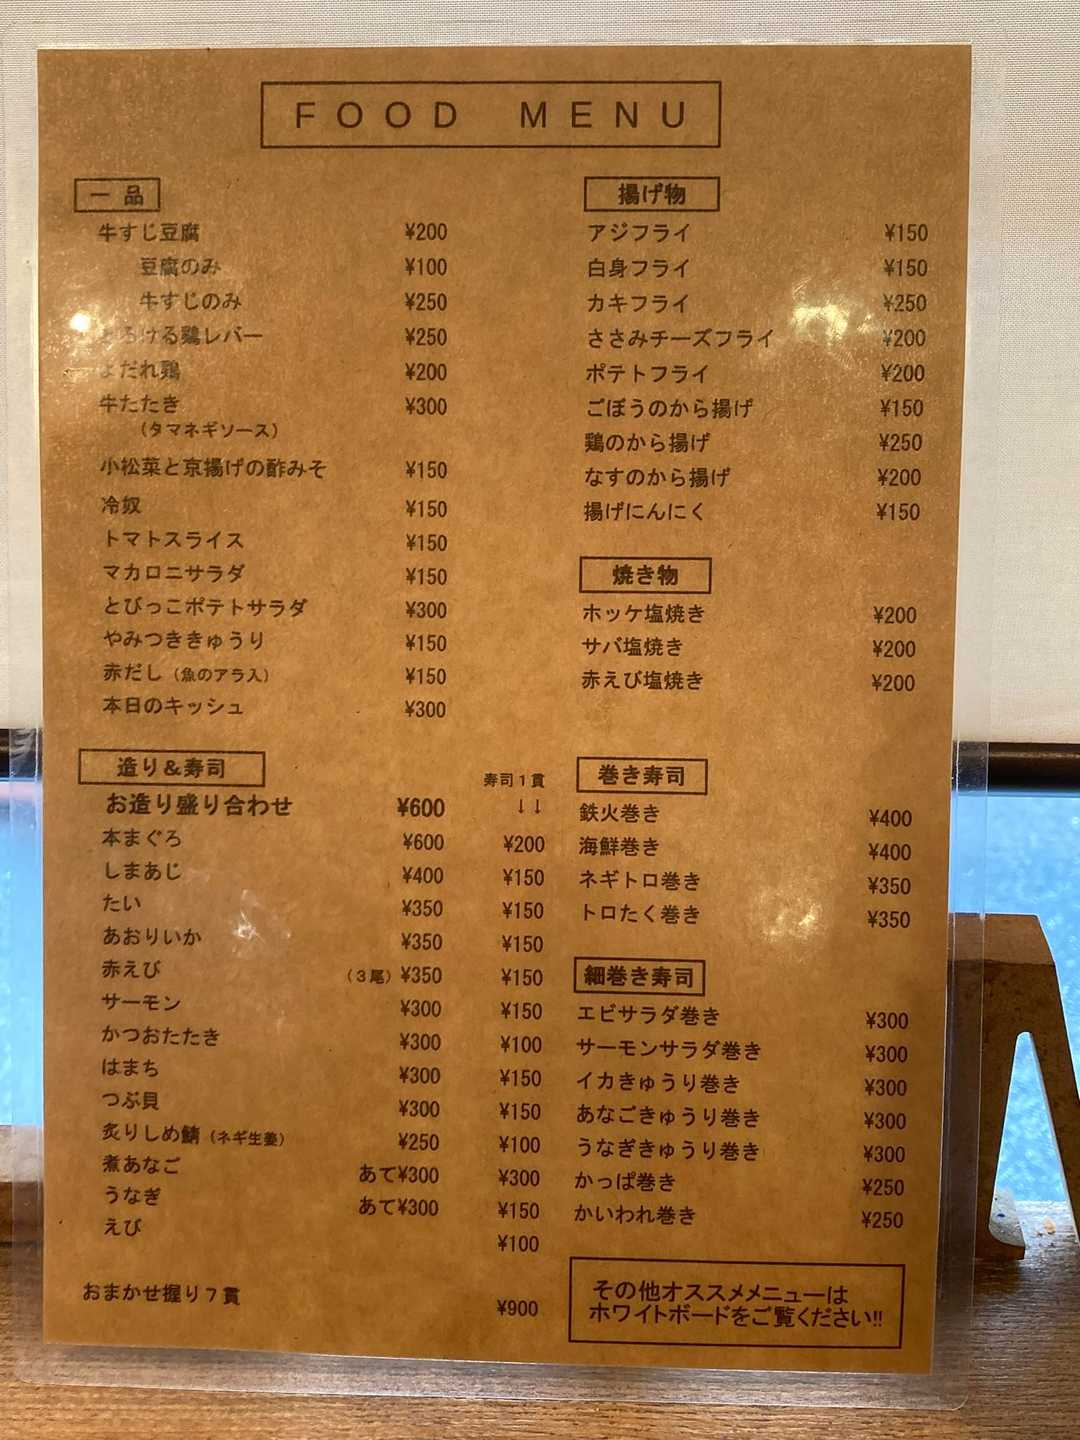 FOOD MENU
一品
牛すじ豆腐 ¥200
豆腐のみ ¥100
牛すじのみ ¥250
とろける鶏レバー ¥250
よだれ鶏 ¥200
牛たたき ¥300
(タマネギソース)
小松菜と京揚げの酢みそ ¥150
冷奴 ¥150
トマトスライス ¥150
マカロニサラダ ¥150
とびっこポテトサラダ ¥300
やみつききゅうり ¥150
赤だし(魚のアラ入) ¥150
本日のキッシュ ¥300
造り&寿司
寿司1貫
お造り盛り合わせ ¥600 ↓↓
本まぐろ ¥600 ¥200
しまあじ ¥400 ¥150
たい ¥350 ¥150
あおりいか ¥350 ¥150
赤えび (3尾) ¥350 ¥150
サーモン ¥300 ¥150
かつおたたき ¥300 ¥100
はまち ¥300 ¥150
つぶ貝 ¥300 ¥150
炙りしめ鯖(ネギ生姜) ¥250 ¥100
煮あなご あて¥300 ¥300
うなぎ あて¥300 ¥150
えび ¥100
おまかせ握り7貫 ¥900
揚げ物
アジフライ ¥150
白身フライ ¥150
カキフライ ¥250
ささみチーズフライ ¥200
ポテトフライ ¥200
ごぼうのから揚げ ¥150
鶏のから揚げ ¥250
なすのから揚げ ¥200
揚げにんにく ¥150
焼き物
ホッケ塩焼き ¥200
サバ塩焼き ¥200
赤えび塩焼き ¥200
巻き寿司
鉄火巻き ¥400
海鮮巻き ¥400
ネギトロ巻き ¥350
トロたく巻き ¥350
細巻き寿司
エビサラダ巻き ¥300
サーモンサラダ巻き ¥300
イカきゅうり巻き ¥300
あなごきゅうり巻き ¥300
うなぎきゅうり巻き ¥300
かっぱ巻き ¥250
かいわれ巻き ¥250
その他オススメメニューは
ホワイトボードをご覧ください!!